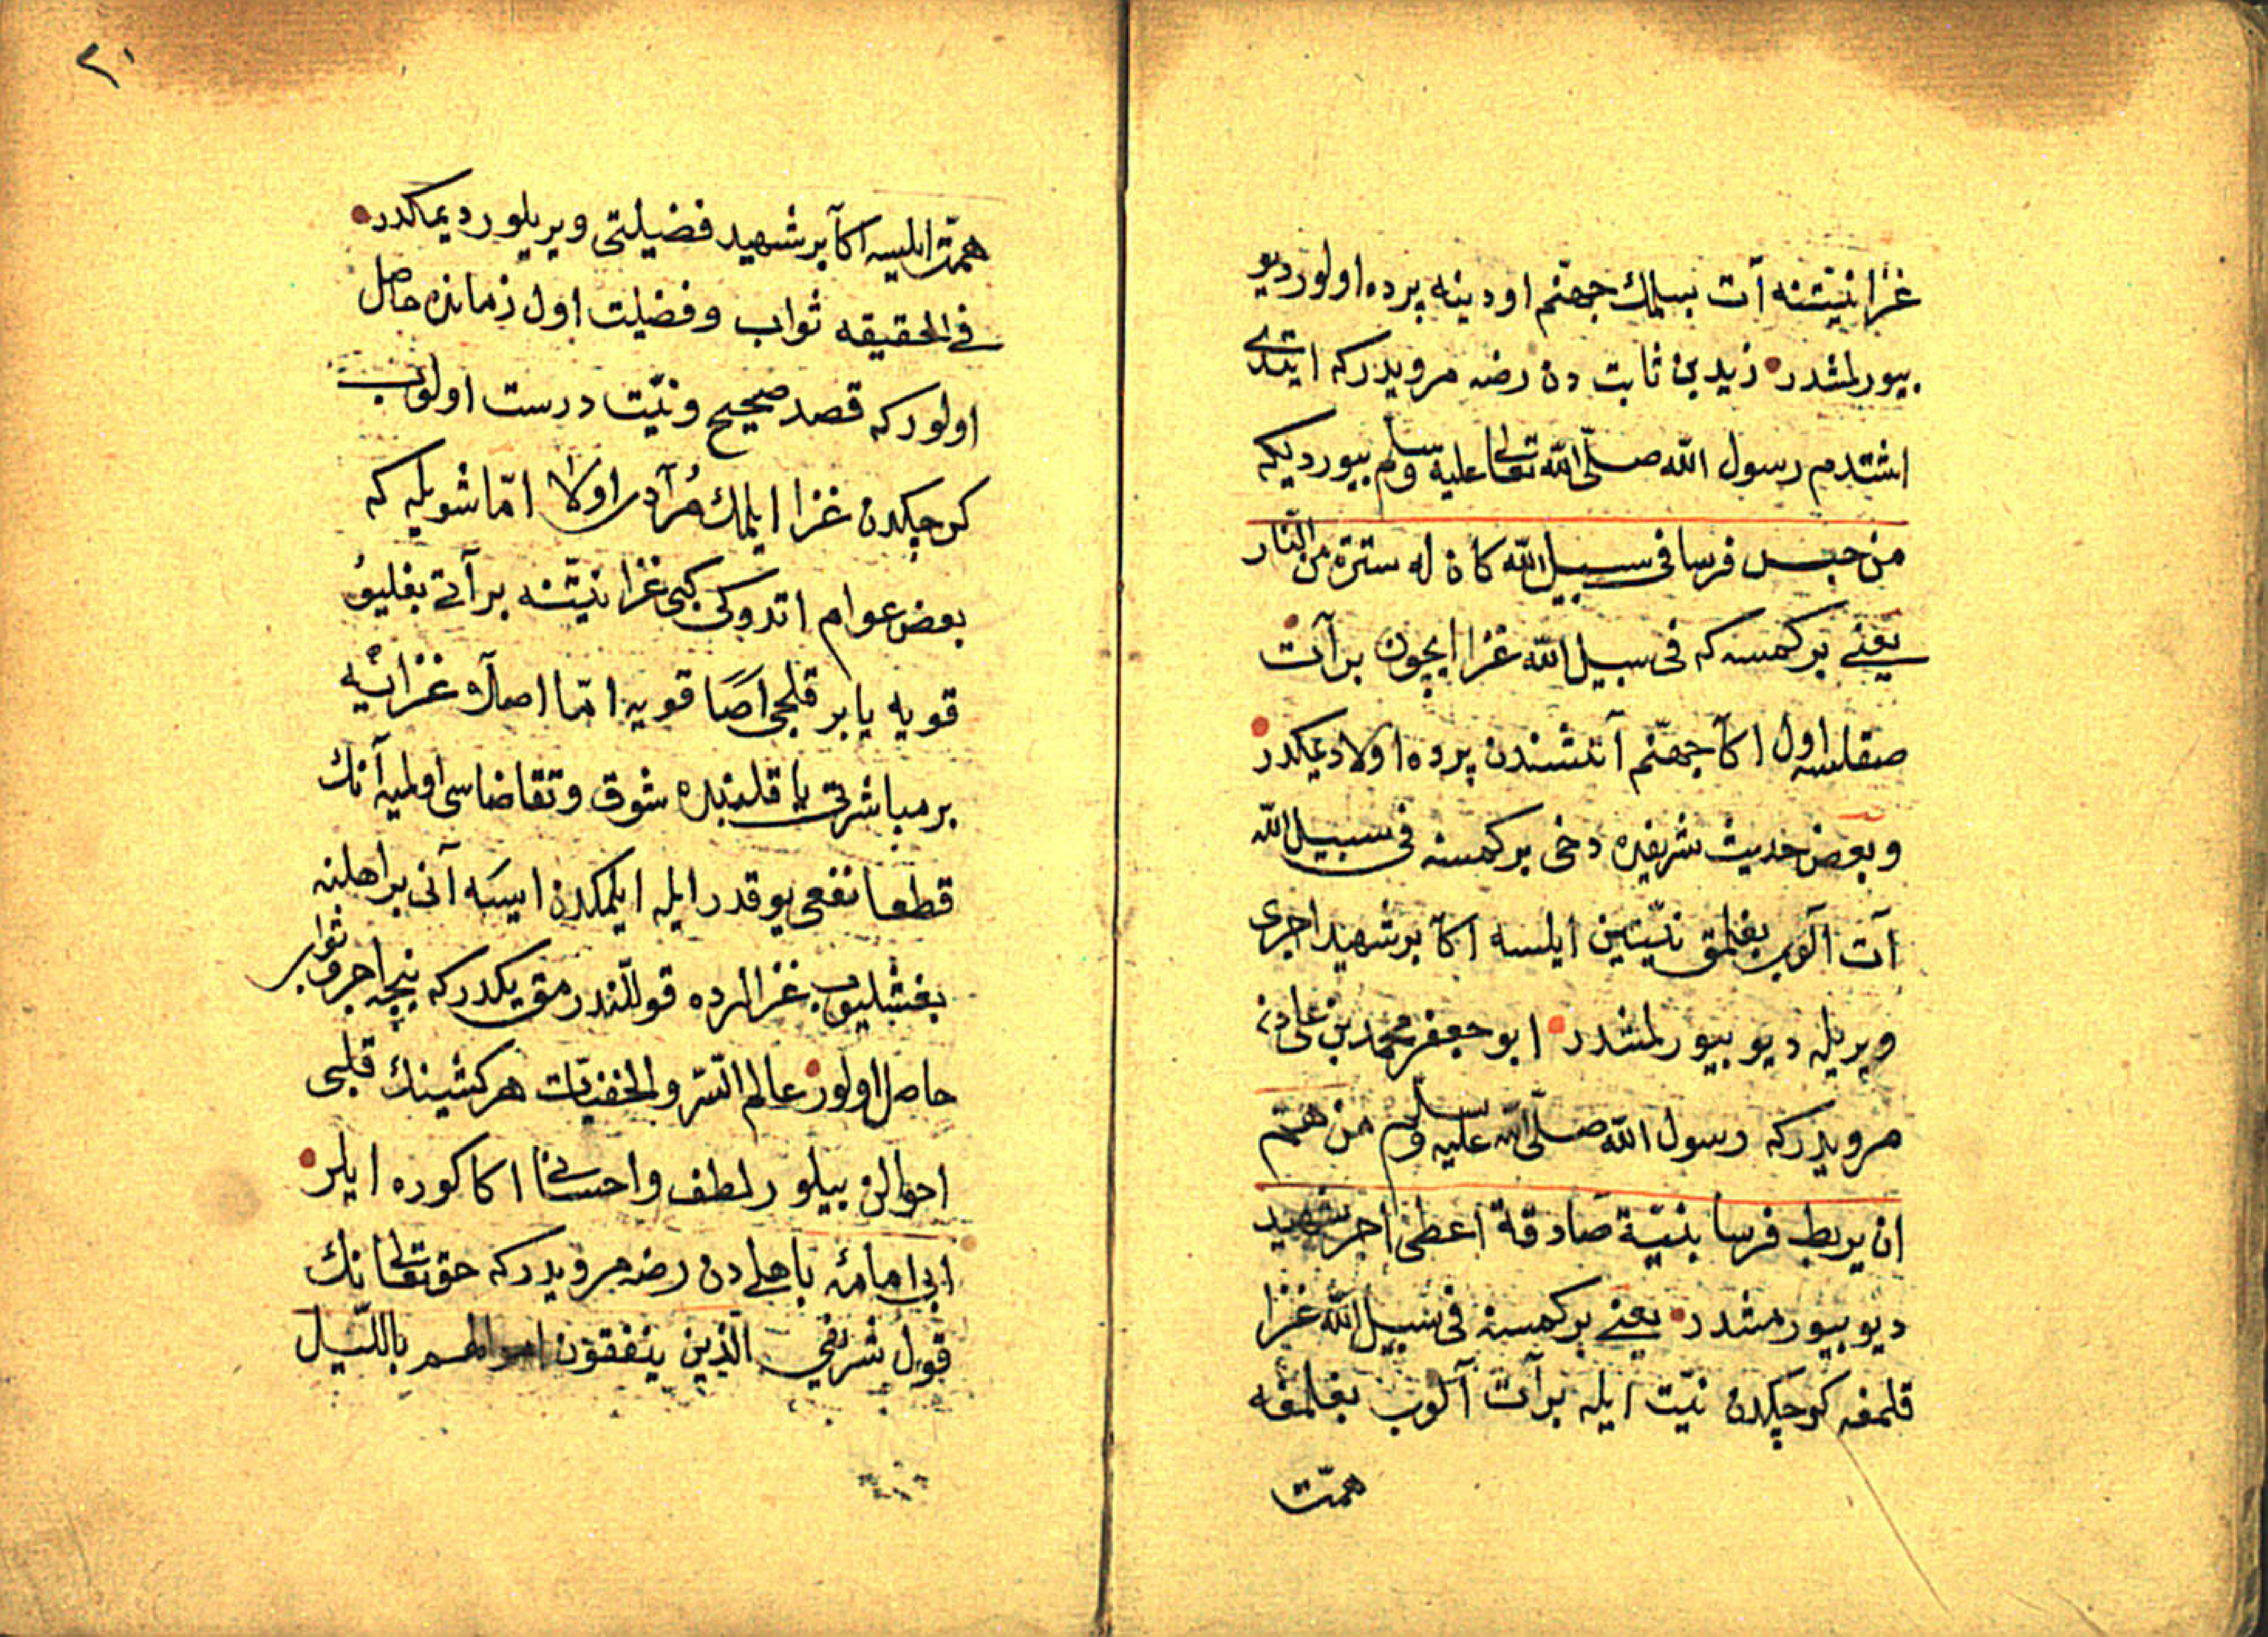 غزا نیتنه آت بسلمك جهنم اودینه پرده اولور دیو
بیورلمشدر زید بن ثابت دن رضه مرویدر که ایتدی
اشتدم رسول الله صلی الله تعالی علیه وسلم بیوردیکه
من حبس فرسا فی سبیل الله کان له سترة من النار
یعنی بر کمسنه که فی سبیل الله غزا ایچون بر آت
صقلسه اول اکا جهنم آتشندن پرده اولا دیمکدر
و بعض حدیث شریفده دخی بر کمسنه فی سبیل الله
آت آلوب بغلمق نیتین ایلسه اکا بر شهید اجری
ویریله دیو بیورلمشدر ابو جعفر محمد بن علی دن
مرویدر که رسول الله صلی الله علیه وسلم من هم
ان یربط فرسا بنیة صادقة اعطی اجر شهید
دیو بیورمشدر یعنی بر کمسنه فی سبیل الله غزا
قلمغه کرچکدن نیت ایله بر آت آلوب بغلمغه
همت
۲۰
همت ایلیسه اکا بر شهید فضیلتی ویریلور دیمکدر
فی الحقیقه ثواب و فضیلت اول زمانده حاصل
اولور که قصد صحیح و نیت درست اولوب
کرچکدن غزا ایلمك مرادی اولا اما شویله که
بعض عوام اتدوکی کبی غزا نیتنه بر آتی بغلیو
قویه یا بر قلجی اصا قویه اما اصلا غزایه
بر مباشرتی یا قلبنده شوق و تقاضاسی اولمیه آنك
قطعا نفعی یوقدر ایله ایلمکدن ایسه آنی بر اهلنه
بغشلیوب غزالرده قوللندرمق یکدر که نیجه اجر و ثوابلر
حاصل اولور عالم السر والخفیات هر کشینك قلبی
احوالن بیلور لطف و احسانی اکا کوره ایلر
ابی امامهٔ باهلی دن رضه مرویدر که حق تعالی نك
قول شریفی الذین ینفقون اموالهم باللیل